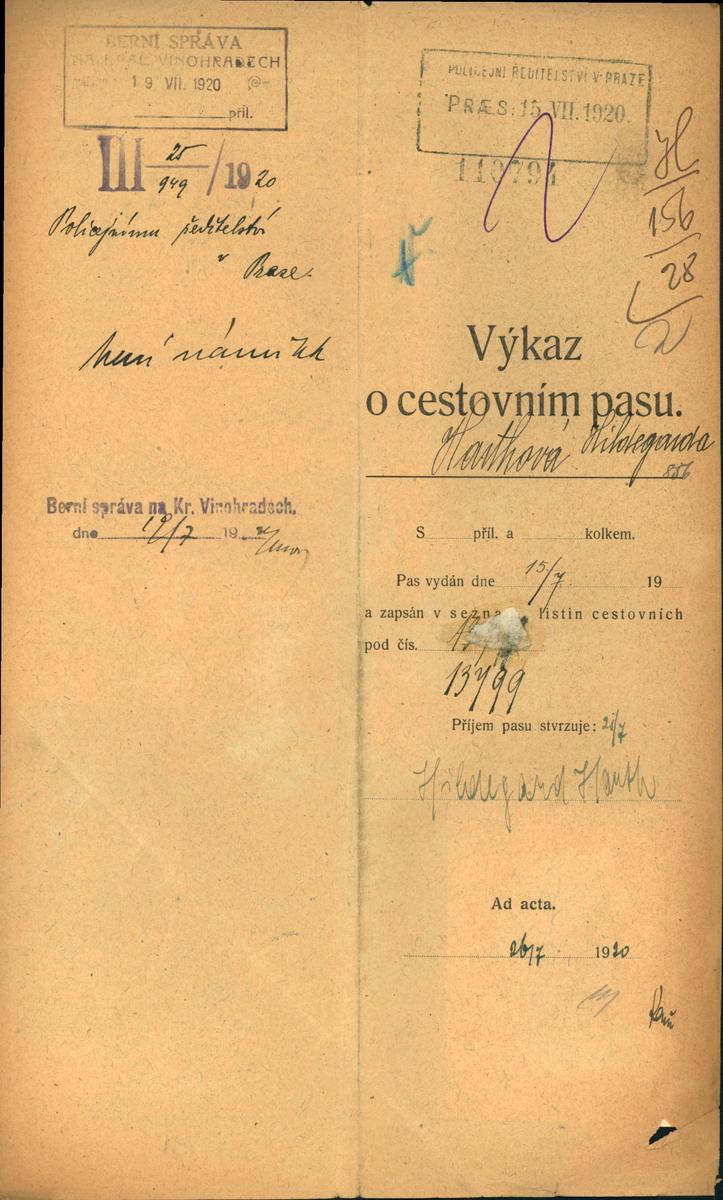 BERNÍ SPRÁVA
NA KRÁL. VINOHRADECH
19 VII. 1920
příl.
III 25/949 / 1920
Policejnímu ředitelství
v Praze.
není námitek
Berní správa na Kr. Vinohradech.
dne 19/7 19
POLICEJNÍ ŘEDITELSTVÍ V PRAZE
PRÆS: 15. VII. 1920.
110794
H
156
28
2
Výkaz
o cestovním pasu.
Hauthová Hildegarda
856
S příl. a kolkem.
Pas vydán dne 15/7. 19
a zapsán v sezna listin cestovních
pod čís.
13799
Příjem pasu stvrzuje: 21/7
Hildegard Hauth
Ad acta.
26/7 1920